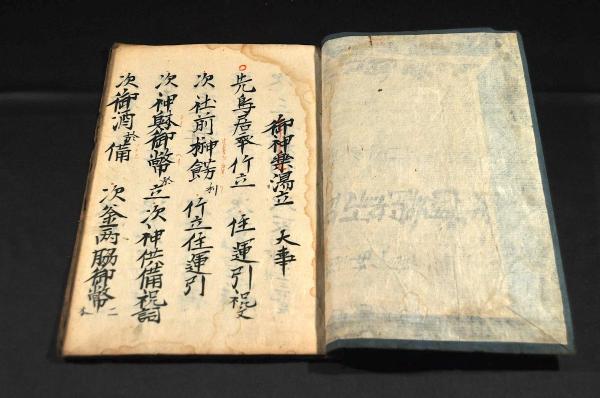 御神楽湯立 大事
先鳥居平竹立 住連引 祝文
次社前榊餝 利 竹立住連引
次神財御幣於立 次神供備祝詞
次御酒於備 次釜両脇御幣 二本